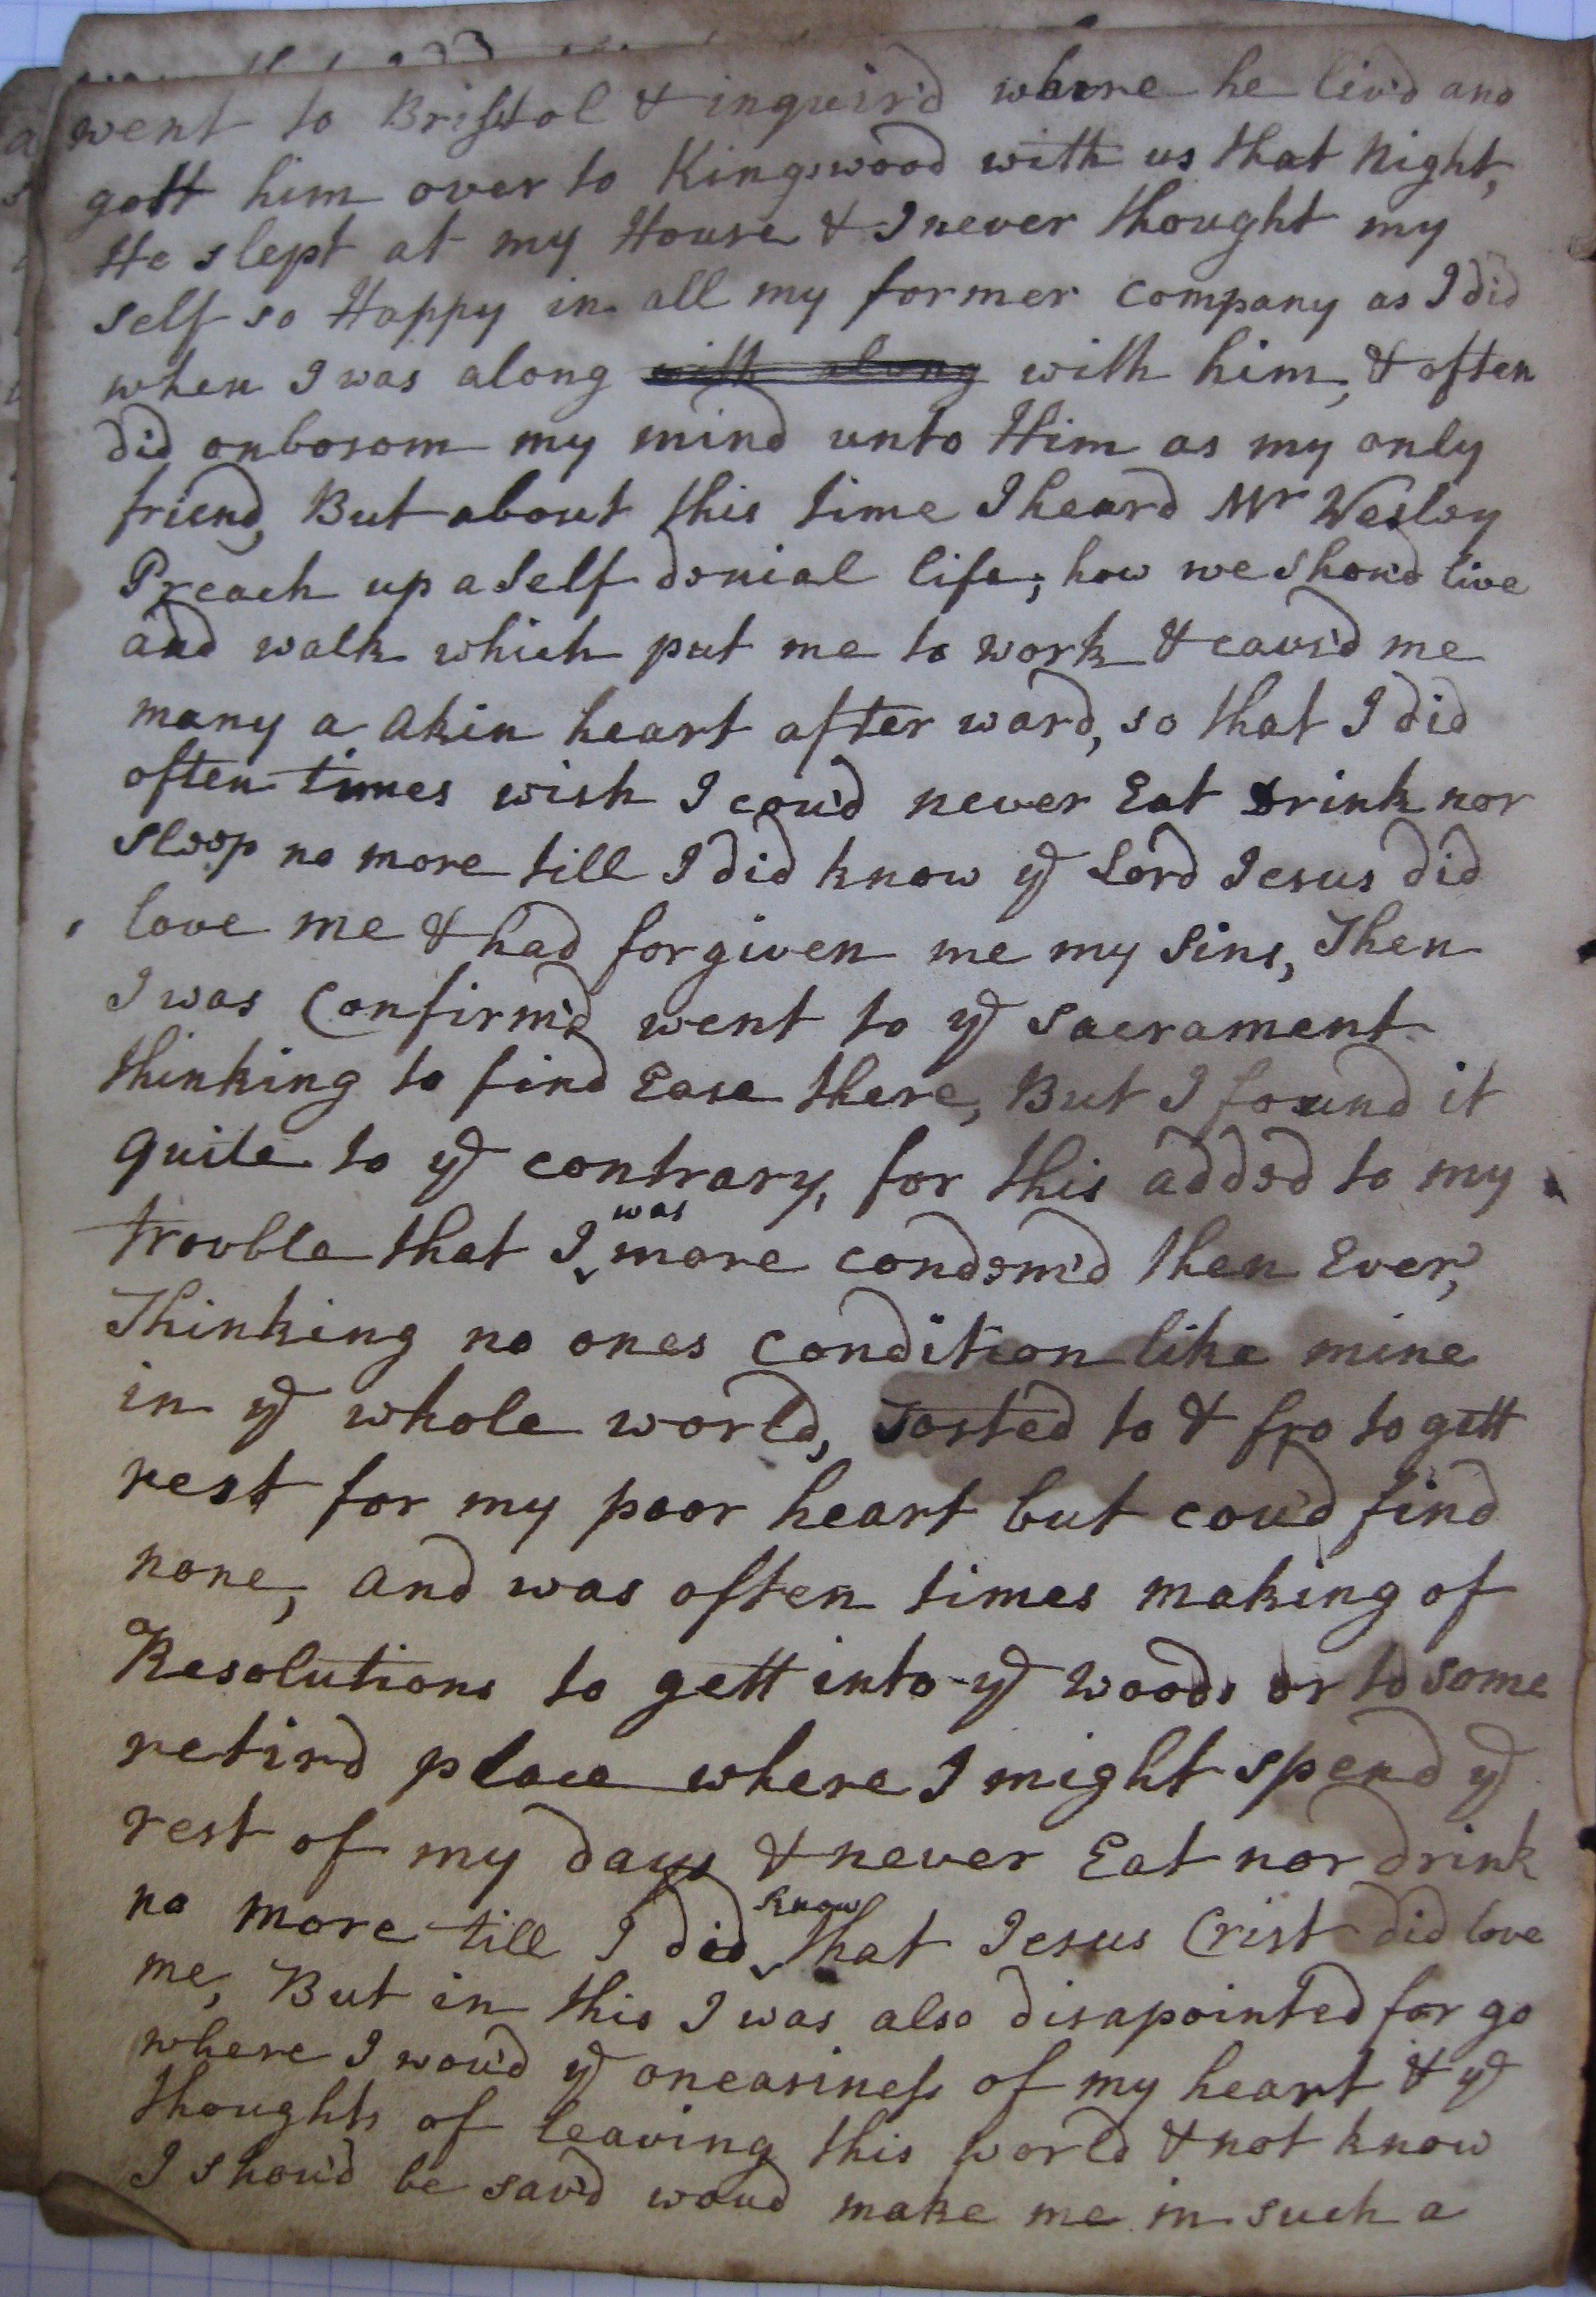 went to Bristol & inquir'd where he liv'd and
gott him over to Kingswood with us that Night,
He slept at my House & I never thought my
self so Happy in all my former company as I did
when I was along with along with him, & often
did onbosom my mind unto Him as my only
friend, But about this time I heard Mr Wesley
Preach up a self denial life; how we shou'd live
and walk which put me to work & caus'd me
many a akin heart after ward, so that I did
often times wish I cou'd never Eat Drink nor
sleep no more till I did know ye Lord Jesus did
love me & had forgiven me my sins, Then
I was Confirm'd went to ye Sacrament
thinking to find Ease there, But I found it
quite to ye contrary, for this added to my
trouble that I was more condem'd then Ever,
Thinking no ones condition like mine
in ye whole world, Tosted to & fro to gett
rest for my poor heart but cou'd find
none, and was often times making of
Resolutions to gett into ye woods or to some
retird place where I might spend ye
rest of my days & never Eat nor drink
no more till I did know that Jesus Crist did love
me, But in this I was also disapointed for go
where I wou'd ye oneasiness of my heart & ye
thoughts of leaving this world & not know
I shou'd be sav'd woud make me in such a